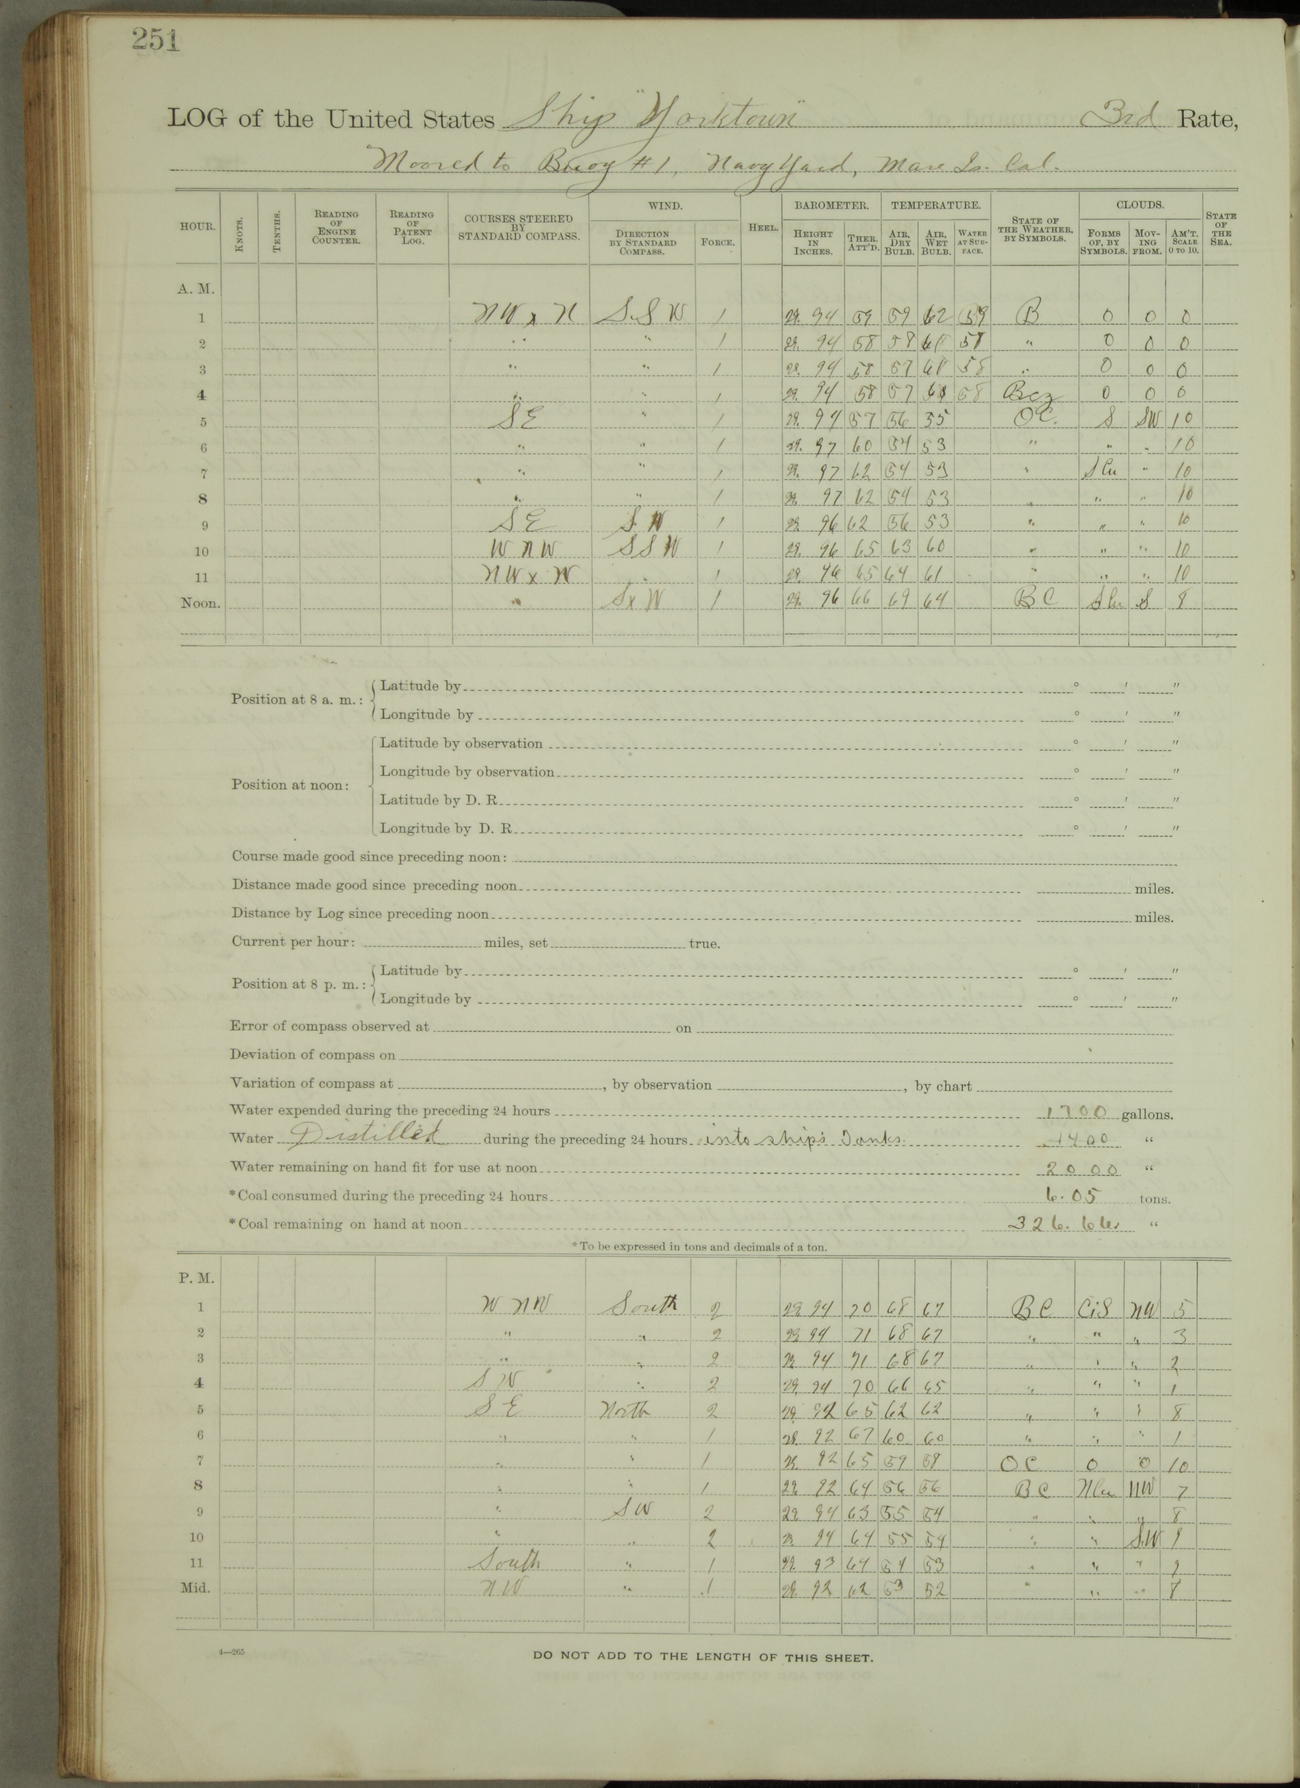 251
LOG of the United States Ship "Yorktown" 3rd Rate,
Moored to Buoy #1, Navy Yard, Mare Is. Cal.
HOUR. KNOTS. TENTHS. READING OF ENGINE COUNTER. READING OF PATENT LOG. COURSES STEERED BY STANDARD COMPASS. WIND. DIRECTION BY STANDARD COMPASS. FORCE. HEEL. BAROMETER. HEIGHT IN INCHES. THER. ATT'D. TEMPERATURE. AIR, DRY BULB. AIR, WET BULB. WATER AT SURFACE. STATE OF THE WEATHER, BY SYMBOLS. CLOUDS. FORMS OF, BY SYMBOLS. MOVING FROM. AM'T. SCALE 0 TO 10. STATE OF THE SEA.
A. M.
1 NW x N S.S W 1 29. 94 59 59 62 59 B 0 0 0
2 " " 1 29. 94 58 58 58 " 0 0 0
3 " " 1 29. 94 58 57 58 " 0 0 0
4 " " 1 29. 94 58 57 58 Bcz 0 0 0
5 SE " 1 29. 94 57 56 55 OC. S SW 10
6 " " 1 29. 97 60 54 53 " " " 10
7 " " 1 29. 97 62 54 53 " S Cu " 10
8 " " 1 29. 97 62 54 53 " " " 10
9 SE S. W 1 29. 96 62 56 53 " " " 10
10 W N W S S W 1 29. 96 65 63 60 " " " 10
11 NW x W " 1 29. 96 65 64 61 " " " 10
Noon. " S x W 1 29. 96 66 69 64 BC S Cu S 8
Position at 8 a. m.: Latitude by ° ′ ″
Longitude by ° ′ ″
Position at noon: Latitude by observation ° ′ ″
Longitude by observation ° ′ ″
Latitude by D. R. ° ′ ″
Longitude by D. R. ° ′ ″
Course made good since preceding noon:
Distance made good since preceding noon miles.
Distance by Log since preceding noon miles.
Current per hour: miles, set true.
Position at 8 p. m.: Latitude by ° ′ ″
Longitude by ° ′ ″
Error of compass observed at on
Deviation of compass on
Variation of compass at , by observation , by chart
Water expended during the preceding 24 hours 1700 gallons.
Water Distilled during the preceding 24 hours into ship's Tanks 1400 "
Water remaining on hand fit for use at noon 2000 "
*Coal consumed during the preceding 24 hours 6.05 tons.
*Coal remaining on hand at noon 326.66 "
*To be expressed in tons and decimals of a ton.
P. M.
1 W NW South 2 29. 94 70 68 67 BC CiS NW 5
2 " " 2 29. 94 71 68 67 " " " 3
3 " " 2 29. 94 71 68 67 " " " 2
4 S W " 2 29. 94 70 66 65 " " " 1
5 S E North 2 29. 92 65 62 62 " " " 8
6 " " 1 29. 92 67 60 60 " " " 1
7 " " 1 29. 92 65 59 59 OC 0 0 10
8 " " 1 29. 92 64 56 56 BC NCu NW 7
9 " SW 2 29. 94 63 55 54 " " " 8
10 " " 2 29. 94 64 55 54 " " S.W 9
11 South " 1 29. 93 64 54 53 " " " 9
Mid. NW " 1 29. 92 62 53 52 " " " 7
4—265
DO NOT ADD TO THE LENGTH OF THIS SHEET.